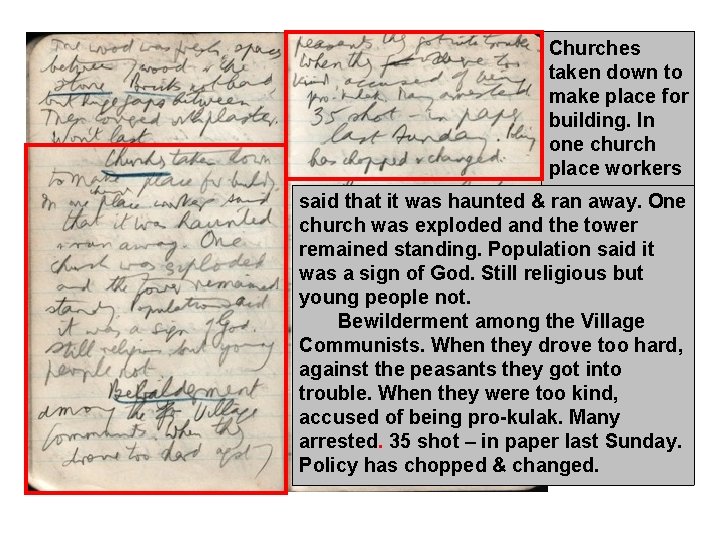 The wood was fresh, spaces
between wood & the
stone. Bricks not hard,
but huge gaps between.
Then covered with plaster.
Won't last.
Churches taken down
to make place for build.
In one church place workers said
that it was haunted
& ran away. One
church was exploded
and the tower remained
standing. Population said
it was a sign of God.
Still religious but young
people not.
Bewilderment
among the Village
Communists. When they
drove too hard agst
peasants they got into trouble.
When they were too
kind, accused of being
pro-kulak. Many arrested
35 shot – in paper
last Sunday. Policy
has chopped & changed.
Churches
taken down to
make place for
building. In
one church
place workers
said that it was haunted & ran away. One
church was exploded and the tower
remained standing. Population said it
was a sign of God. Still religious but
young people not.
Bewilderment among the Village
Communists. When they drove too hard,
against the peasants they got into
trouble. When they were too kind,
accused of being pro-kulak. Many
arrested. 35 shot – in paper last Sunday.
Policy has chopped & changed.